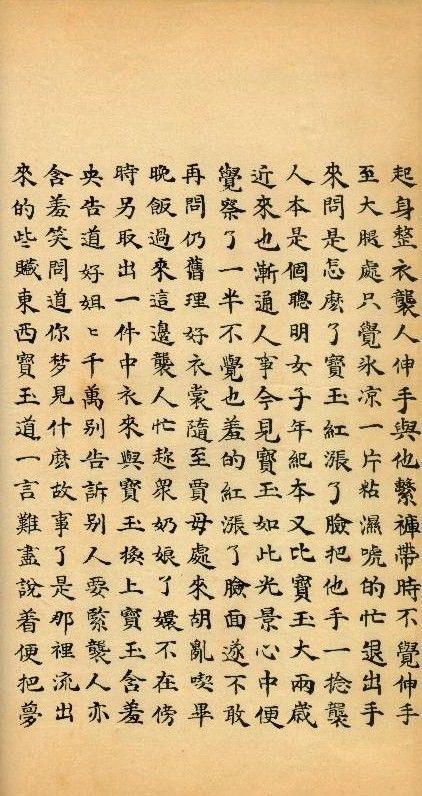 起身整衣襲人伸手與他繫褲帶時不覺伸手
至大腿處只覺氷凉一片粘濕唬的忙退出手
來問是怎麽了寶玉紅漲了臉把他手一捻襲
人本是個聰明女子年紀本又比寶玉大兩歲
近來也漸通人事今見寶玉如此光景心中便
覺察了一半不覺也羞的紅漲了臉面遂不敢
再問仍舊理好衣裳隨至賈母處來胡亂喫畢
晚飯過來這邊襲人忙趂眾奶娘了嬛不在傍
時另取出一件中衣來與寶玉換上寶玉含羞
央告道好姐〻千萬别告訴别人要緊襲人亦
含羞笑問道你梦見什麽故事了是那裡流出
來的些贓東西寶玉道一言難盡說着便把夢